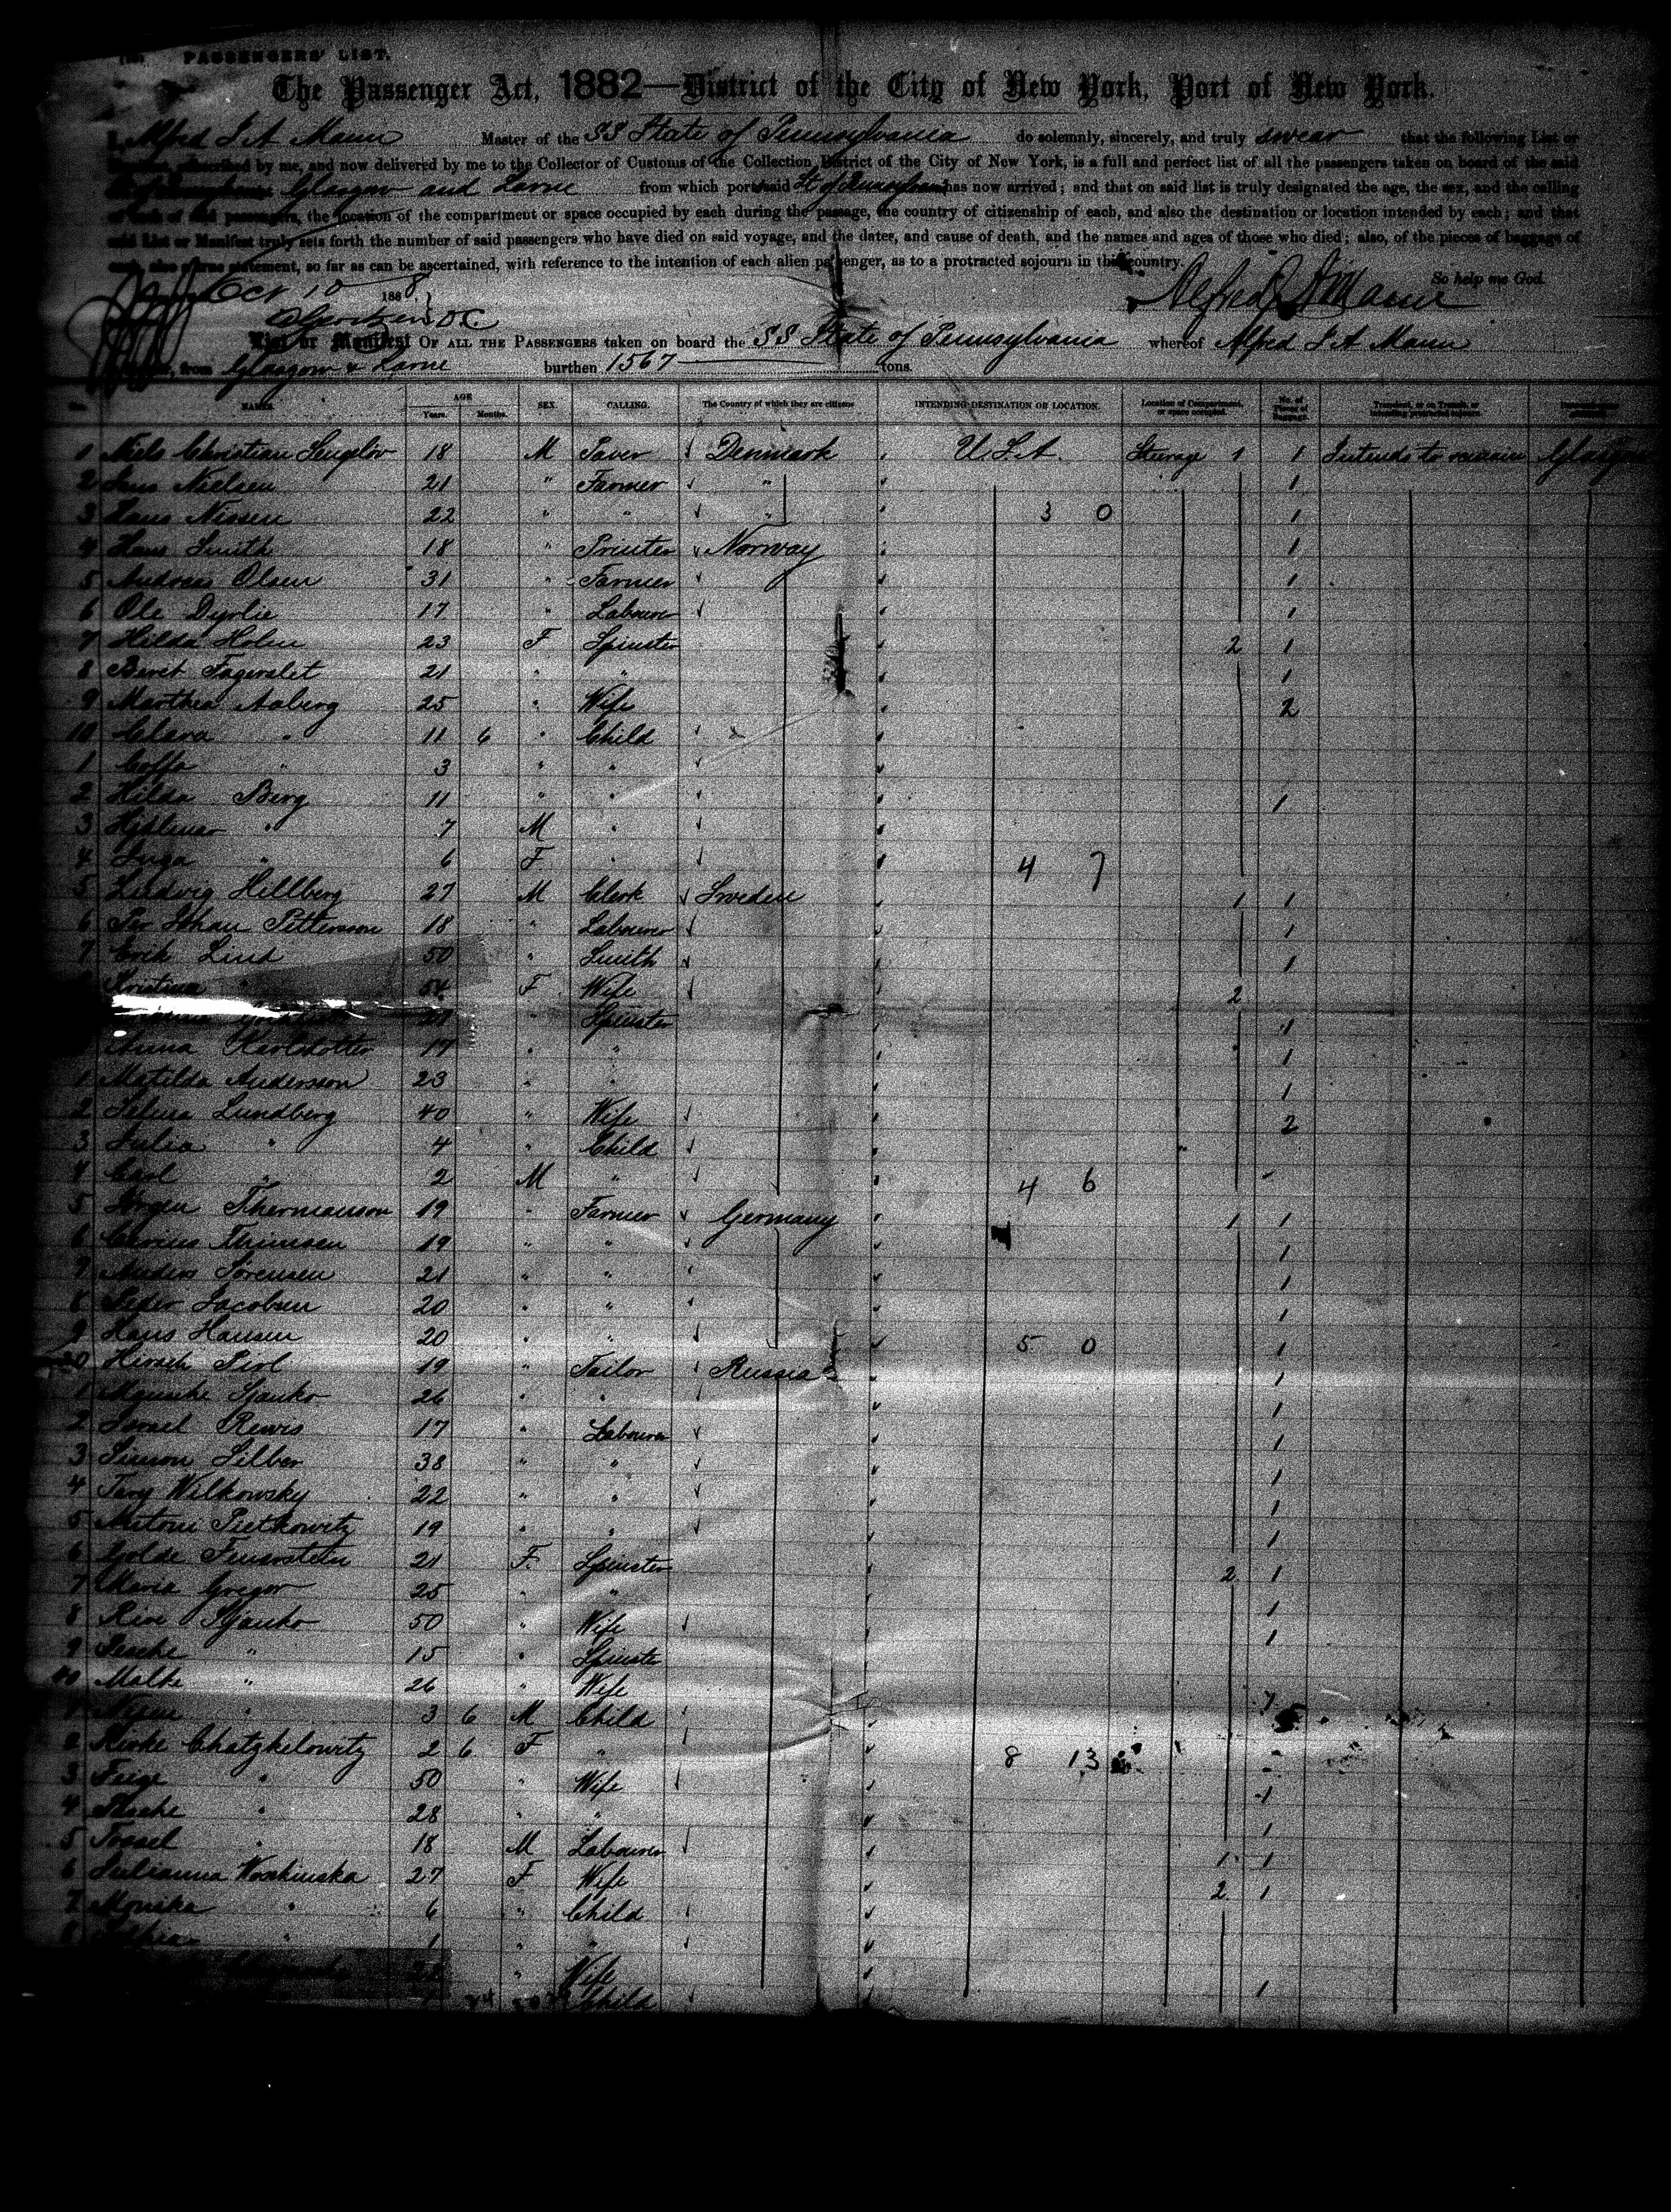 PASSENGERS' LIST.
The Passenger Act, 1882—District of the City of New York, Port of New York.
I, Alfred J A Mann Master of the SS State of Pennsylvania do solemnly, sincerely, and truly swear that the following List or
described by me, and now delivered by me to the Collector of Customs of the Collection District of the City of New York, is a full and perfect list of all the passengers taken on board of the said
Glasgow and Larne from which port said St of Pennsylvania has now arrived; and that on said list is truly designated the age, the sex, and the calling
of each of said passengers, the location of the compartment or space occupied by each during the passage, the country of citizenship of each, and also the destination or location intended by each; and that
said List or Manifest truly sets forth the number of said passengers who have died on said voyage, and the dates, and cause of death, and the names and ages of those who died; also, of the pieces of baggage of
each, also a true statement, so far as can be ascertained, with reference to the intention of each alien passenger, as to a protracted sojourn in this country.
So help me God.
Oct 10 1888
Alfred J A Mann
List or Manifest OF ALL THE PASSENGERS taken on board the SS State of Pennsylvania whereof Alfred J A Mann
from Glasgow & Larne burthen 1567 tons.
NAMES. AGE Years. Months. SEX. CALLING. The Country of which they are citizens INTENDING DESTINATION OR LOCATION. Location of Compartment, or space occupied. No. of Pieces of Baggage. Transient, or on Transit, or intending protracted sojourn.
1 Niels Christian 18 M Paver Denmark U.S.A. Steerage 1 1 Intends to remain Glasgow
2 Jens Nielsen 21 " Farmer " 1
3 Hans Nissen 22 " " " 3 0 1
4 Hans Smith 18 " Printer Norway 1
5 Andreas Olsen 31 " Farmer 1
6 Ole Dyrlie 17 " Labourer 1
7 Hilda Holen 23 F Spinster 2 1
8 Beret 21 " " 1
9 Marthea Aaberg 25 " Wife 2
10 Clara " 11 6 " Child
1 " 3 " "
2 Hilda Berg 11 " " 1
3 Hjalmar " 7 M "
4 Inga " 6 F " 4 7
5 Ludwig Hellberg 27 M Clerk Sweden 1 1
6 Per Johan Pettersson 18 " Labourer 1
7 Erik Lind 50 " Smith 1
Kristina " 54 F Wife 2
21 " Spinster 1
Anna Karlsdotter 17 " " 1
1 Matilda Andersson 23 " " 1
2 Selma Lundberg 40 " Wife 2
3 Julia " 4 " Child
4 Carl " 2 M " 4 6
5 Jörgen Thermanson 19 " Farmer Germany 1 1
6 Thimsen 19 " " 1
7 Anders Sorensen 21 " " 1
8 Peder Jacobsen 20 " " 1
9 Hans Hansen 20 " " 5 0 1
30 Hirsch Perl 19 " Tailor Russia 1
1 Mausche Sjanko 26 " " 1
2 Israel Rewis 17 " Labourer 1
3 Simon Silber 38 " " 1
4 Wilkowsky 22 " " 1
5 Antoni Pietkowitz 19 " " 1
6 Golde Feuerstein 21 F. Spinster 2 1
7 Maria Gregor 25 " " 1
8 Sjanko 50 " Wife 1
9 Pesche " 15 " Spinster
40 Malke " 26 " Wife
1 " 3 6 M Child
2 Rivke Chatzkelowitz 2 6 F " 8 13
3 Feige " 50 " Wife 1
4 " 28 " " 1
5 Tossel " 18 M Labourer 1 1
6 Julianna Woshinska 27 F Wife 2 1
7 Monika " 6 " Child
8 " 1 " "
" Wife 1
Child